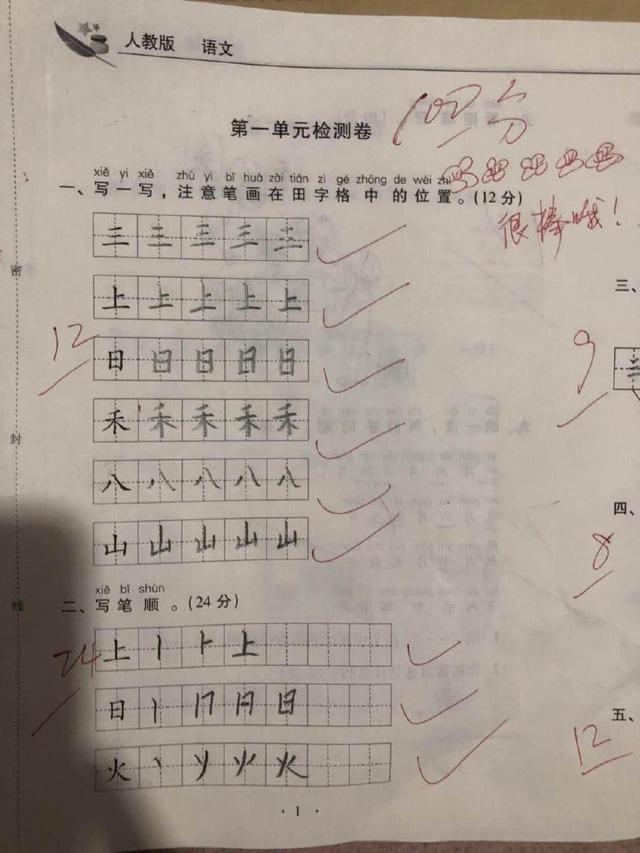 人教版 语文
第一单元检测卷
100分
很棒哦！
xiě yi xiě zhù yì bǐ huà zài tián zì gé zhōng de wèi zhì
一、写一写，注意笔画在田字格中的位置。(12分)
三 三 三 三 三
上 上 上 上 上
12
日 日 日 日 日
禾 禾 禾 禾 禾
八 八 八 八 八
山 山 山 山 山
xiě bǐ shùn
二、写笔顺。(24分)
24
上 丨 ⺊ 上
日 丨 冂 月 日
火 丶 丷 火 火
·1·
三、
9
四、
8
五、
12
密
封
线